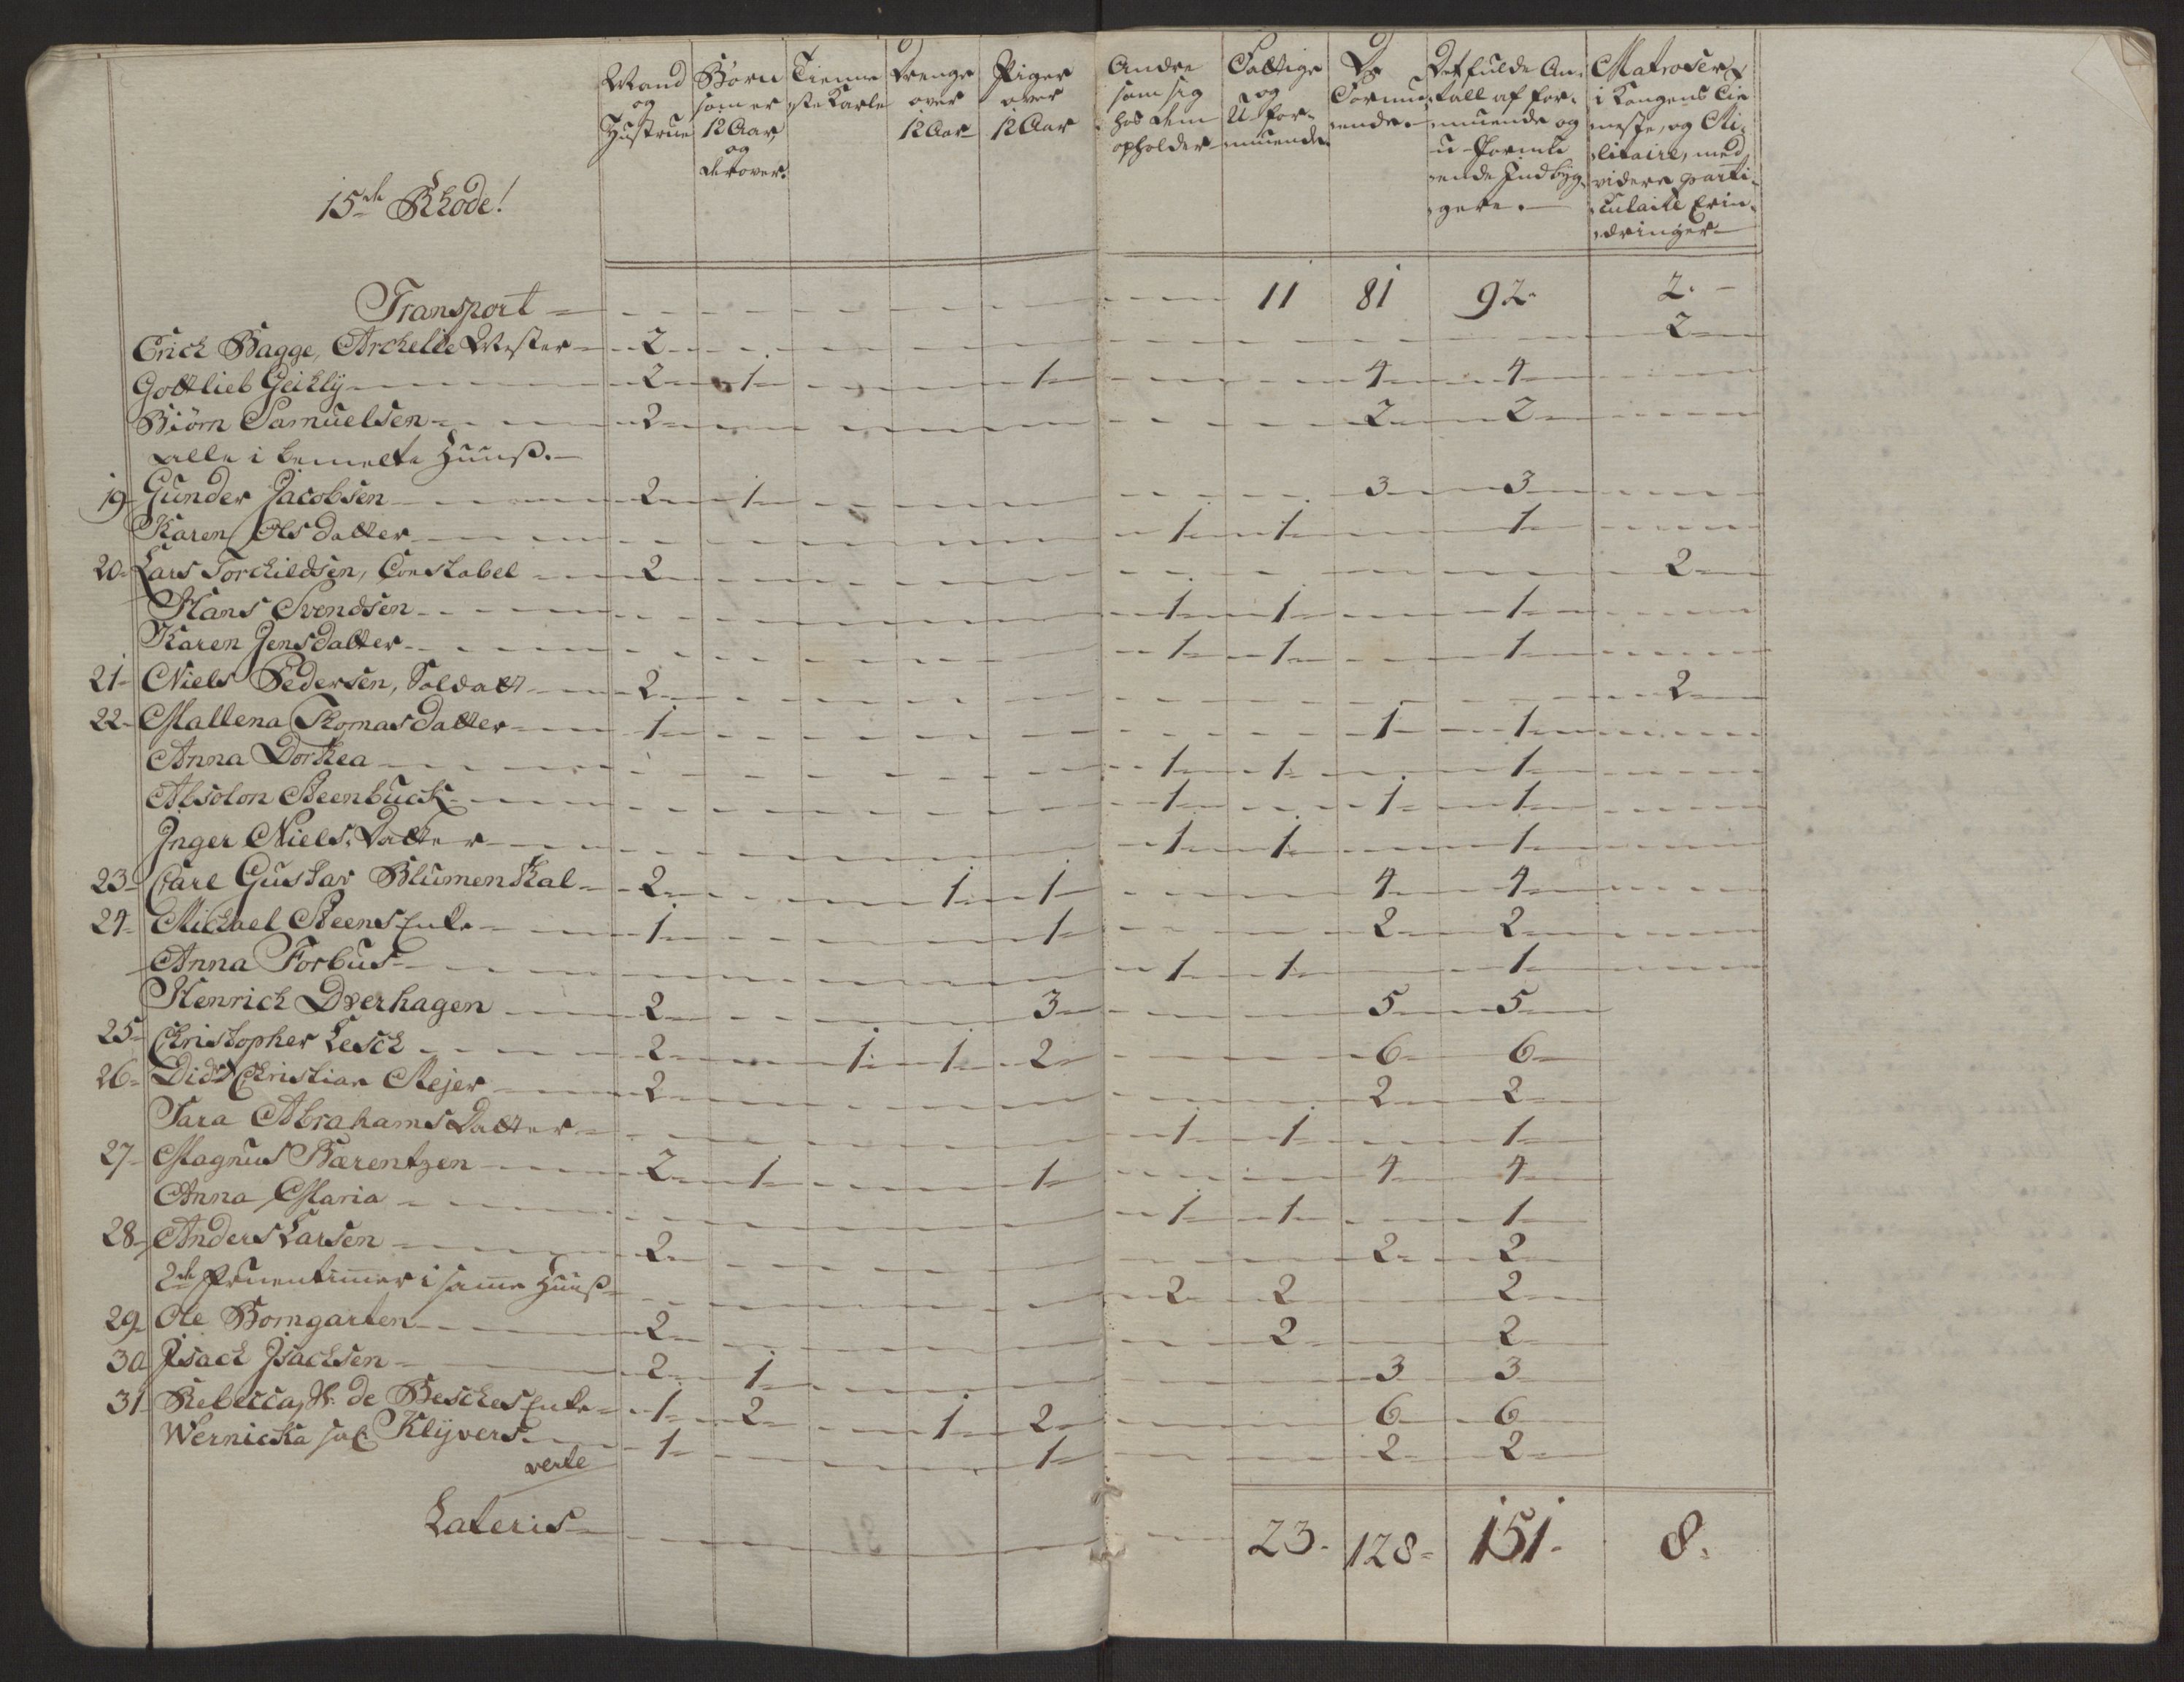 15de Rhode!
Mand og Hustrue | Børn som er 12 Aar, og derover. | Tienneste Karle | Drenge over 12 Aar | Piger over 12 Aar | Andre som sig hos dem opholder | Fattige og U-formuende | De Formuende | Det fulde Antall af formuende og u-formuende Indbyggere. | Matroser i Kongens Tieneste, og Militaire, med videre particulaire Erindringer
Transport - 11 81 92 2.
Erich Bagge, Archelie Mester - 2 - 2
Gottlieb Geikly - 2 1 1 4 4
Biörn Samuelsen - 2 2 2
alle i bemelte Huuß.
19 Gunder Jacobsen - 2 1 3 3
Karen Olsdatter - 1 1 1
20 Lars Torchildsen, Constabel - 2 2
Hans Svendsen - 1 1 1
Karen Jensdatter - 1 1 1
21 Niels Pedersen, Soldatt - 2 2
22 Mallena Thomasdatter - 1 1 1
Anna Dorthea - 1 1 1
Absolon Steenbuck - 1 1 1
Inger Niels Datter - 1 1 1
23 Carl Gustav Blumenthal - 2 1 1 4 4
24 Michael Steens Enke - 1 1 2 2
Anna Forbus - 1 1 1
Henrich Dverhagen - 2 3 5 5
25 Christopher Lesch - 2 1 1 2 6 6
26 Didr Christian Mejer - 2 2 2
Sara Abrahams Datter - 1 1 1
27 Magnus Bærentzen - 2 1 1 4 4
Anna Maria - 1 1 1
28 Anders Larsen - 2 2 2
2de Fruentimmer i samme Huuß - 2 2 2
29 Ole Bomgarten - 2 2 2
30 Isach Isachsen - 2 1 3 3
31 Rebecca, de Besches Enke - 1 2 1 2 6 6
Wernicka sal Klyvers - 1 1 2 2
verte
Lateris - 23. 128 151. 8.